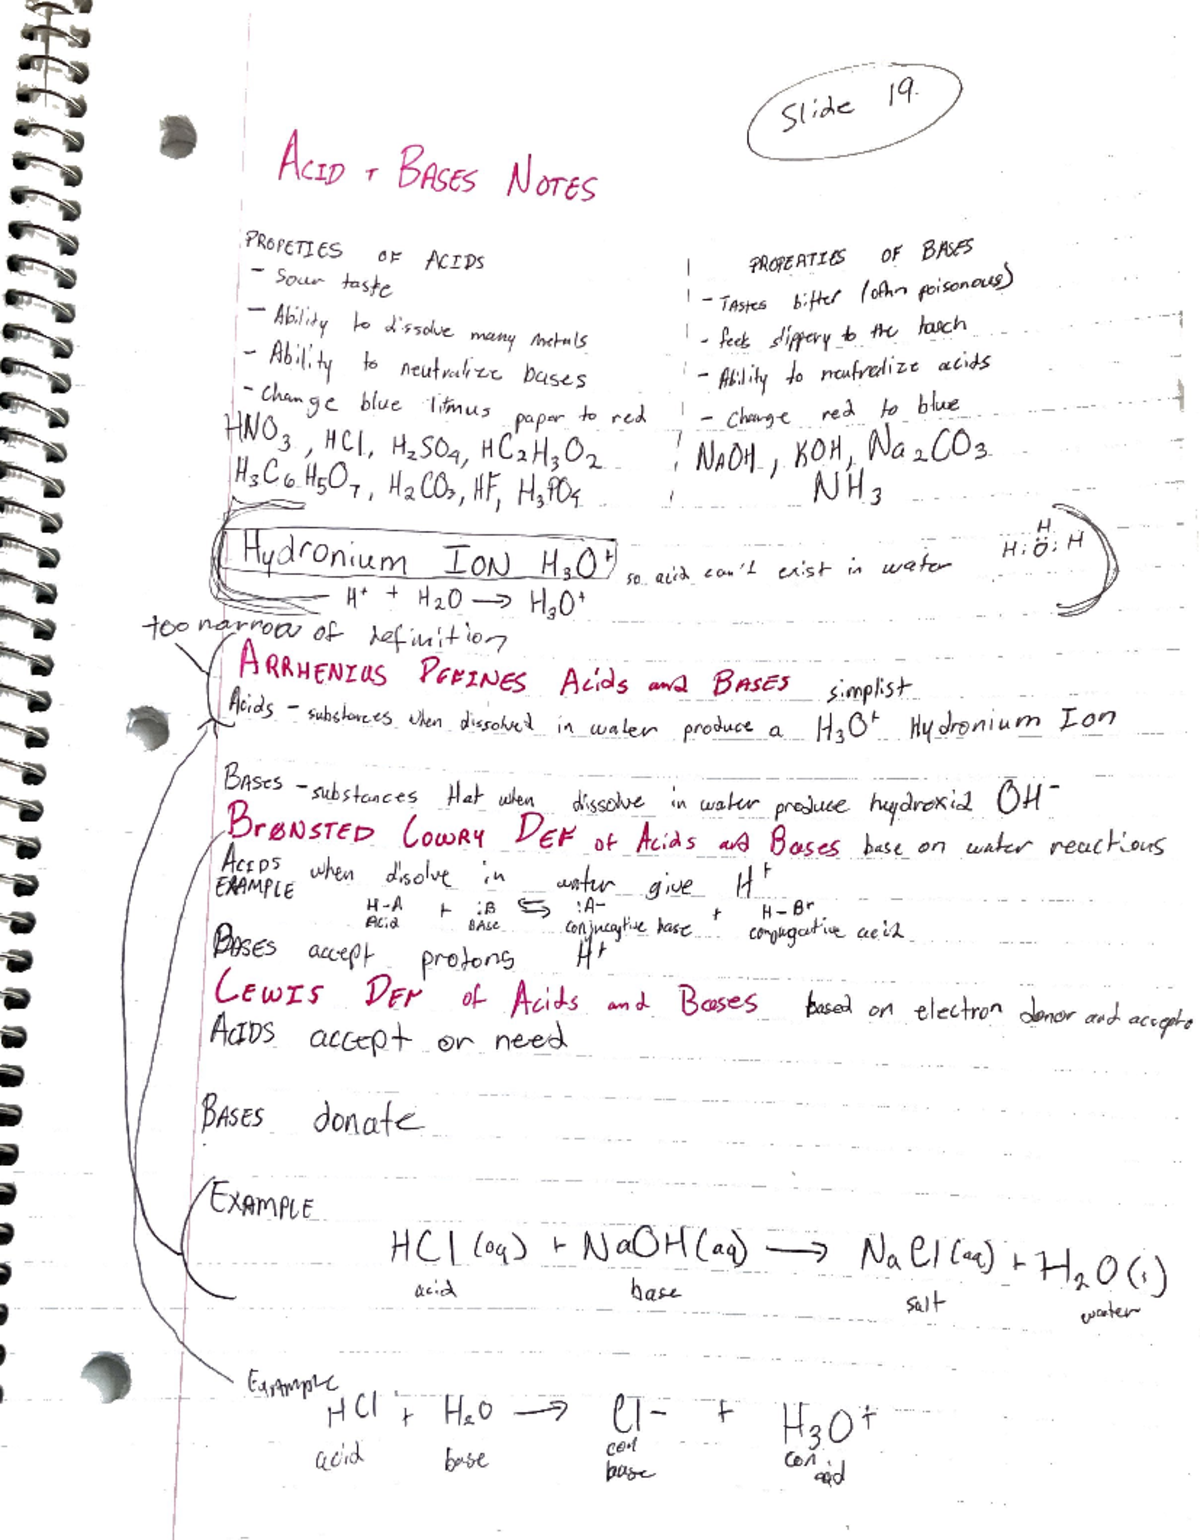 Slide 19.
ACID + BASES NOTES
PROPETIES OF ACIDS
- Sour taste
- Ability to dissolve many metals
- Ability to neutralize bases
- Change blue litmus paper to red
HNO3, HCl, H2SO4, HC2H3O2
H3C6H5O7, H2CO3, HF, H3PO4
PROPERTIES OF BASES
- TAstes bitter (oftn poisonous)
- feels slippery to the touch
- Ability to neutralize acids
- Change red to blue
NaOH, KOH, Na2CO3
NH3
Hydronium ION H3O+ so acid can't exist in water
H
H:Ö:H
H+ + H2O → H3O+
too narrow of definition
ARRHENIUS DEFINES Acids and BASES simplist
Acids - substances when dissolved in water produce a H3O+ Hydronium Ion
BASES - substances that when dissolve in water produce hydroxid OH-
BRØNSTED LOWRY DEF of Acids and Bases base on water reactions
ACIDS when disolve in water give H+
EXAMPLE
H-A + :B ⇆ :A- + H-B+
Acid BASe conjucative base conjugative acid
BASES accept protons H+
LEWIS DEF of Acids and Bases based on electron donor and accepto
ACIDS accept or need
BASES donate
EXAMPLE
HCl (aq) + NaOH (aq) → NaCl (aq) + H2O (l)
acid base salt water
Example
HCl + H2O → Cl- + H3O+
acid base con base con acid